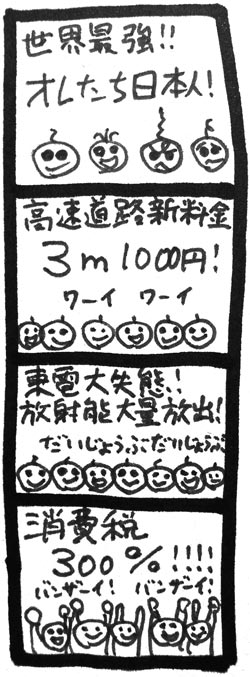 世界最強!!
オレたち日本人!
高速道路新料金
3m1000円!
ワーイ ワーイ
東電大失態!
放射能大量放出!
だいじょうぶだいじょうぶ
消費税
300%!!!!
バンザーイ! バンザーイ!